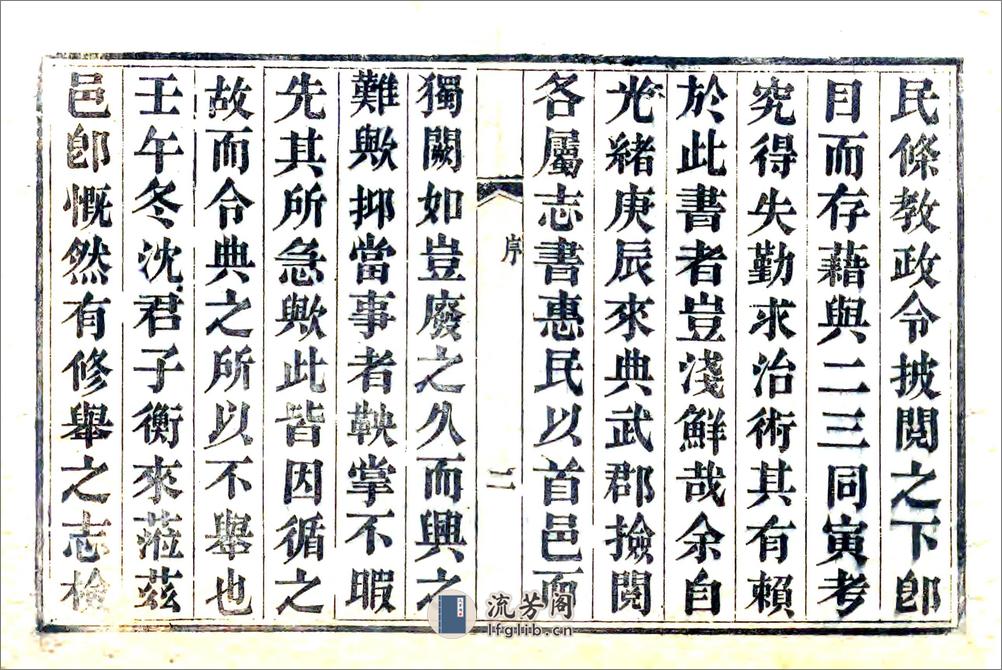 民條教政令披閱之下卽
目而存藉與二三同寅考
究得失勤求治術其有賴
於此書者豈淺鮮哉余自
光緒庚辰來典武郡撿閱
各屬志書惠民以首邑而
序
二
獨闕如豈廢之久而興之
難歟抑當事者鞅掌不暇
先其所急歟此皆因循之
故而令典之所以不舉也
壬午冬沈君子衡來蒞茲
邑卽慨然有修舉之志檢
流芳閣
lfglib.cn